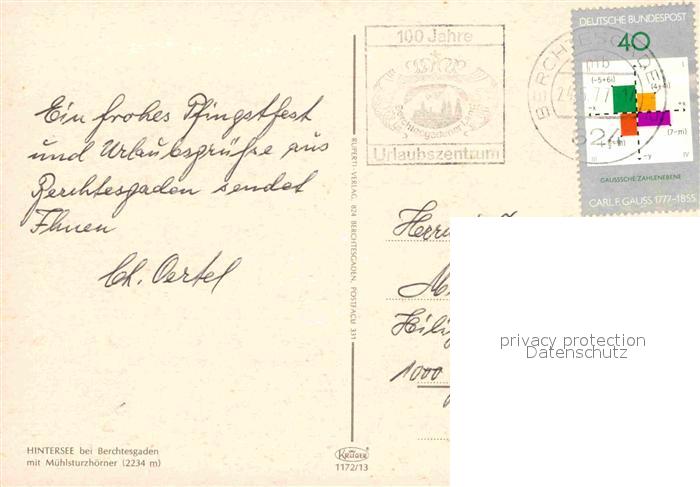 Ein frohes Pfingstfest
und Urlaubsgrüße aus
Berchtesgaden sendet
Ihnen
Ch. Oertel
HINTERSEE bei Berchtesgaden
mit Mühlsturzhörner (2234 m)
RUPERTI-VERLAG, 824 BERCHTESGADEN, POSTFACH 331
KRÜGER
1172/13
100 Jahre
Berchtesgadener Land
Urlaubszentrum
BERCHTESGADEN
mb
824
DEUTSCHE BUNDESPOST
40
(-5+6i)
(4+4i)
-x
(7-i)
-y
III
IV
GAUSSSCHE ZAHLENEBENE
CARL F. GAUSS 1777-1855
Herrn
1000
privacy protection
Datenschutz